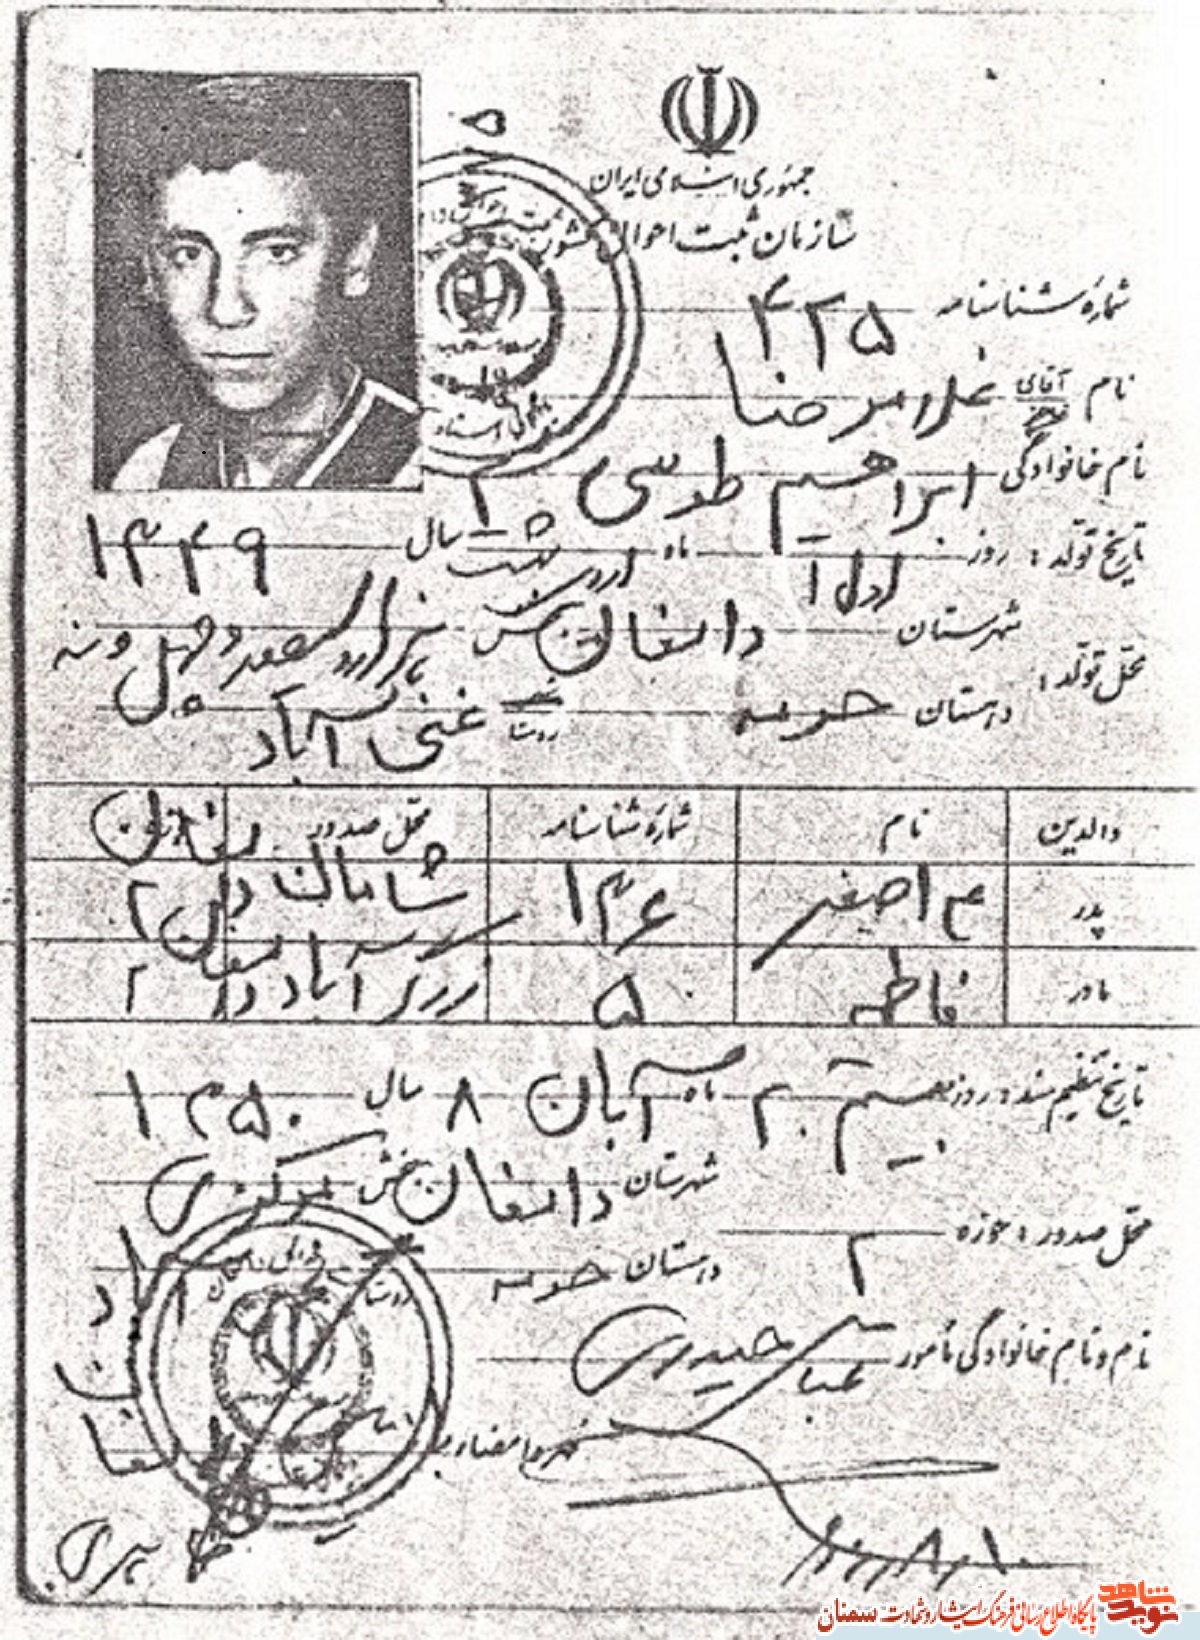 جمهوری اسلامی ایران
سازمان ثبت احوال کشور
شماره شناسنامه ۴۲۵
نام آقای غلامرضا
نام خانوادگی ابراهیم طوسی
تاریخ تولد : روز اول ۱ ماه اردیبهشت ۲ سال ۱۳۴۹
یکهزار و سیصد و چهل و نه
محل تولد : شهرستان دامغان بخش
دهستان حومه روستا غنی آباد
والدین نام شماره شناسنامه محل صدور
پدر اصغر ۱۳۶ شامان دامغان ۲
مادر فاطمه ۵ آباد دامغان ۲
تاریخ تنظیم سند : روز بیستم ۲۰ ماه آبان ۸ سال ۱۳۵۰
شهرستان دامغان بخش مرکزی
محل صدور : حوزه ۲
دهستان حومه روستا
نام و نام خانوادگی مأمور عباس حیدری
مهر و امضاء
نوید شاهد
پایگاه اطلاع رسانی فرهنگ ایثار و شهادت سمنان